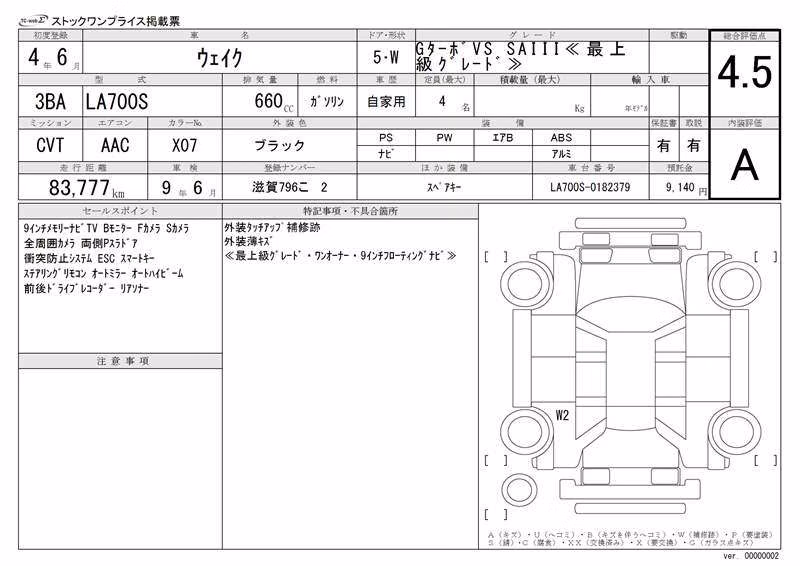 TC-webΣ ストックワンプライス掲載票
初度登録 車名 ドア・形状 グレード 駆動 総合評価点
4年 6月 ウェイク 5・W GターボVS SAIII≪最上級グレード≫ 4.5
型式 排気量 燃料 車歴 定員(最大) 積載量(最大) 輸入車
3BA LA700S 660CC ガソリン 自家用 4名 Kg 年モデル
ミッション エアコン カラーNo. 外装色 装備 保証書 取説 内装評価
CVT AAC X07 ブラック PS PW エアB ABS 有 有 A
ナビ アルミ
走行距離 車検 登録ナンバー ほか装備 車台番号 預託金
83,777km 9年 6月 滋賀796こ 2 スペアキー LA700S-0182379 9,140円
セールスポイント
9インチメモリーナビTV Bモニター Fカメラ Sカメラ
全周囲カメラ 両側Pスラドア
衝突防止システム ESC スマートキー
ステアリングリモコン オートミラー オートハイビーム
前後ドライブレコーダー リアソナー
注意事項
特記事項・不具合箇所
外装タッチアップ補修跡
外装薄キズ
≪最上級グレード・ワンオーナー・9インチフローティングナビ≫
[ ] [ ]
W2
[ ] [ ]
[ ]
A(キズ)・U(ヘコミ)・B(キズを伴うヘコミ)・W(補修跡)・P(要塗装)
S(錆)・C(腐食)・XX(交換済み)・X(要交換)・G(ガラス点キズ)
ver. 00000002